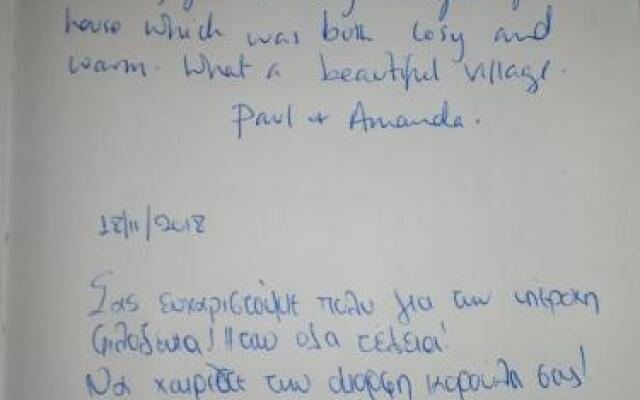 house which was both cosy and
warm. What a beautiful village.
Paul + Amanda.
18/11/2018
Σας ευχαριστούμε πολύ για την υπέροχη
φιλοξενία! Ήταν όλα τέλεια!
Να χαίρεστε την όμορφη κορούλα σας!